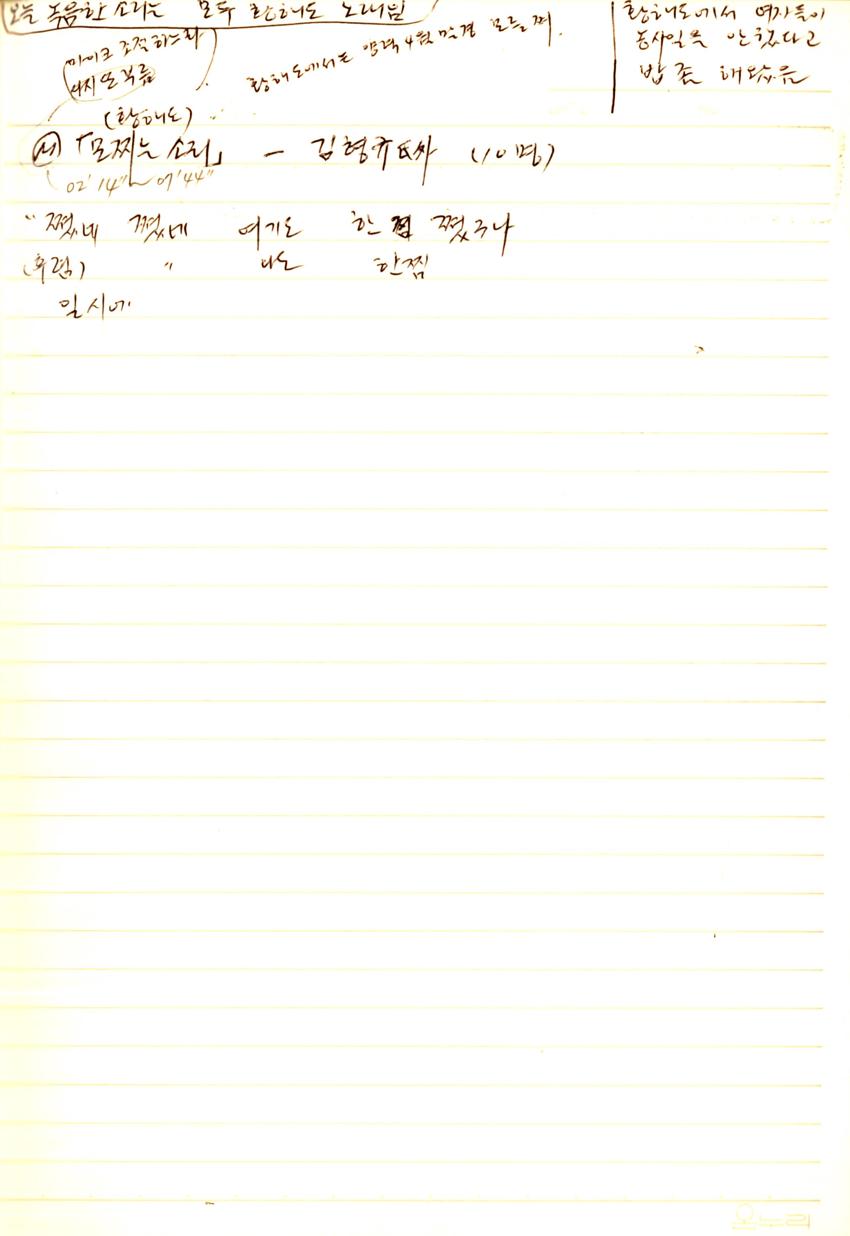 오늘 녹음한 소리는 모두 황해도 노래임
마이크 조절하느라
서지 또 부름
황해도에서는 양력 4월 말경 모를 쪄.
황해도에서 여자들이
농사일을 안했다고
밥 좀 해왔음
(황해도)
서 「모찌는 소리」 - 김형규氏싸 (10명)
02'14"~07'44"
"쪘네 쪘네 여기도 한 쪘구나
(후렴) " 나도 한찜
일시에
온누리